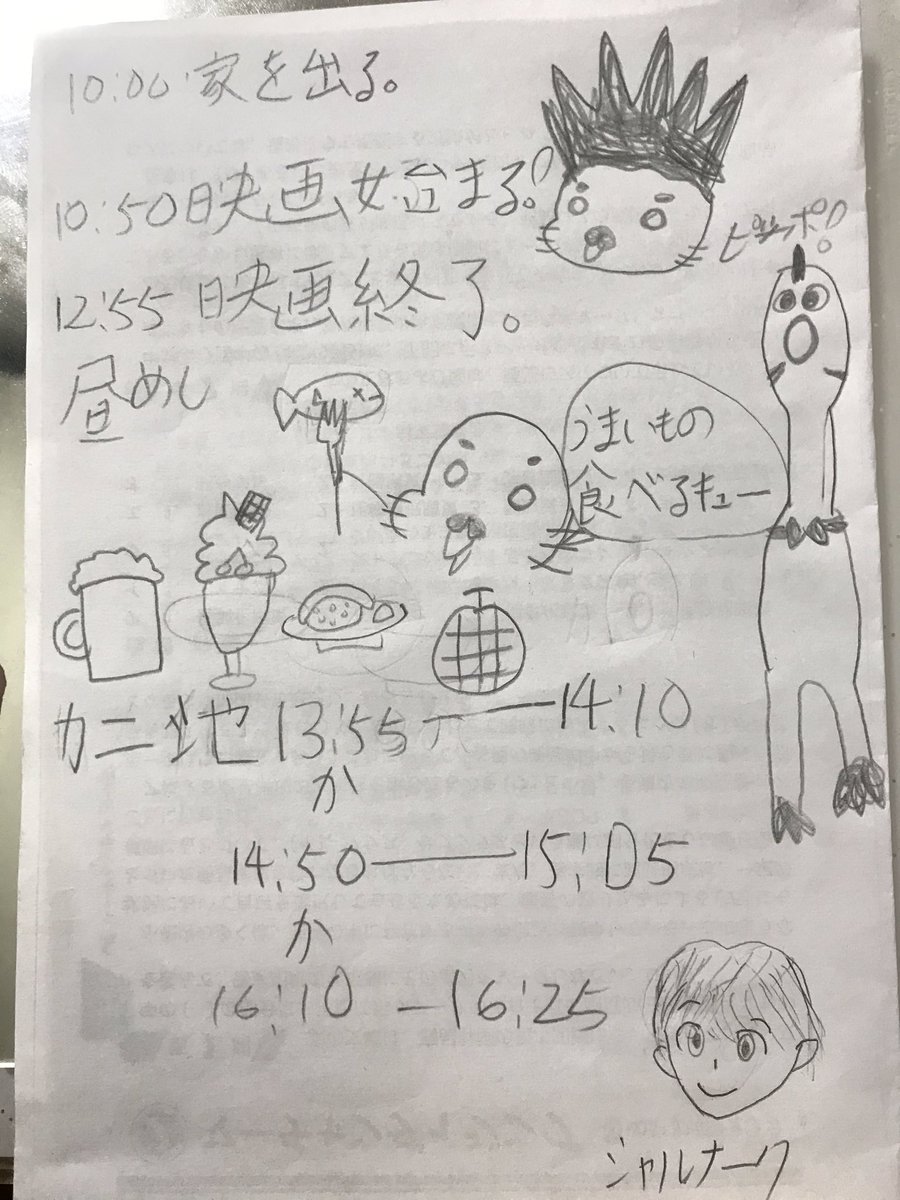 10:00 家を出る。
10:50 映画始まる!
ピッポ!!
12:55 映画終了。
昼めし
うまいもの
食べるキュー
カニ地 13:55 ー 14:10
か
14:50 ー 15:05
か
16:10 ー 16:25
シャルナーク